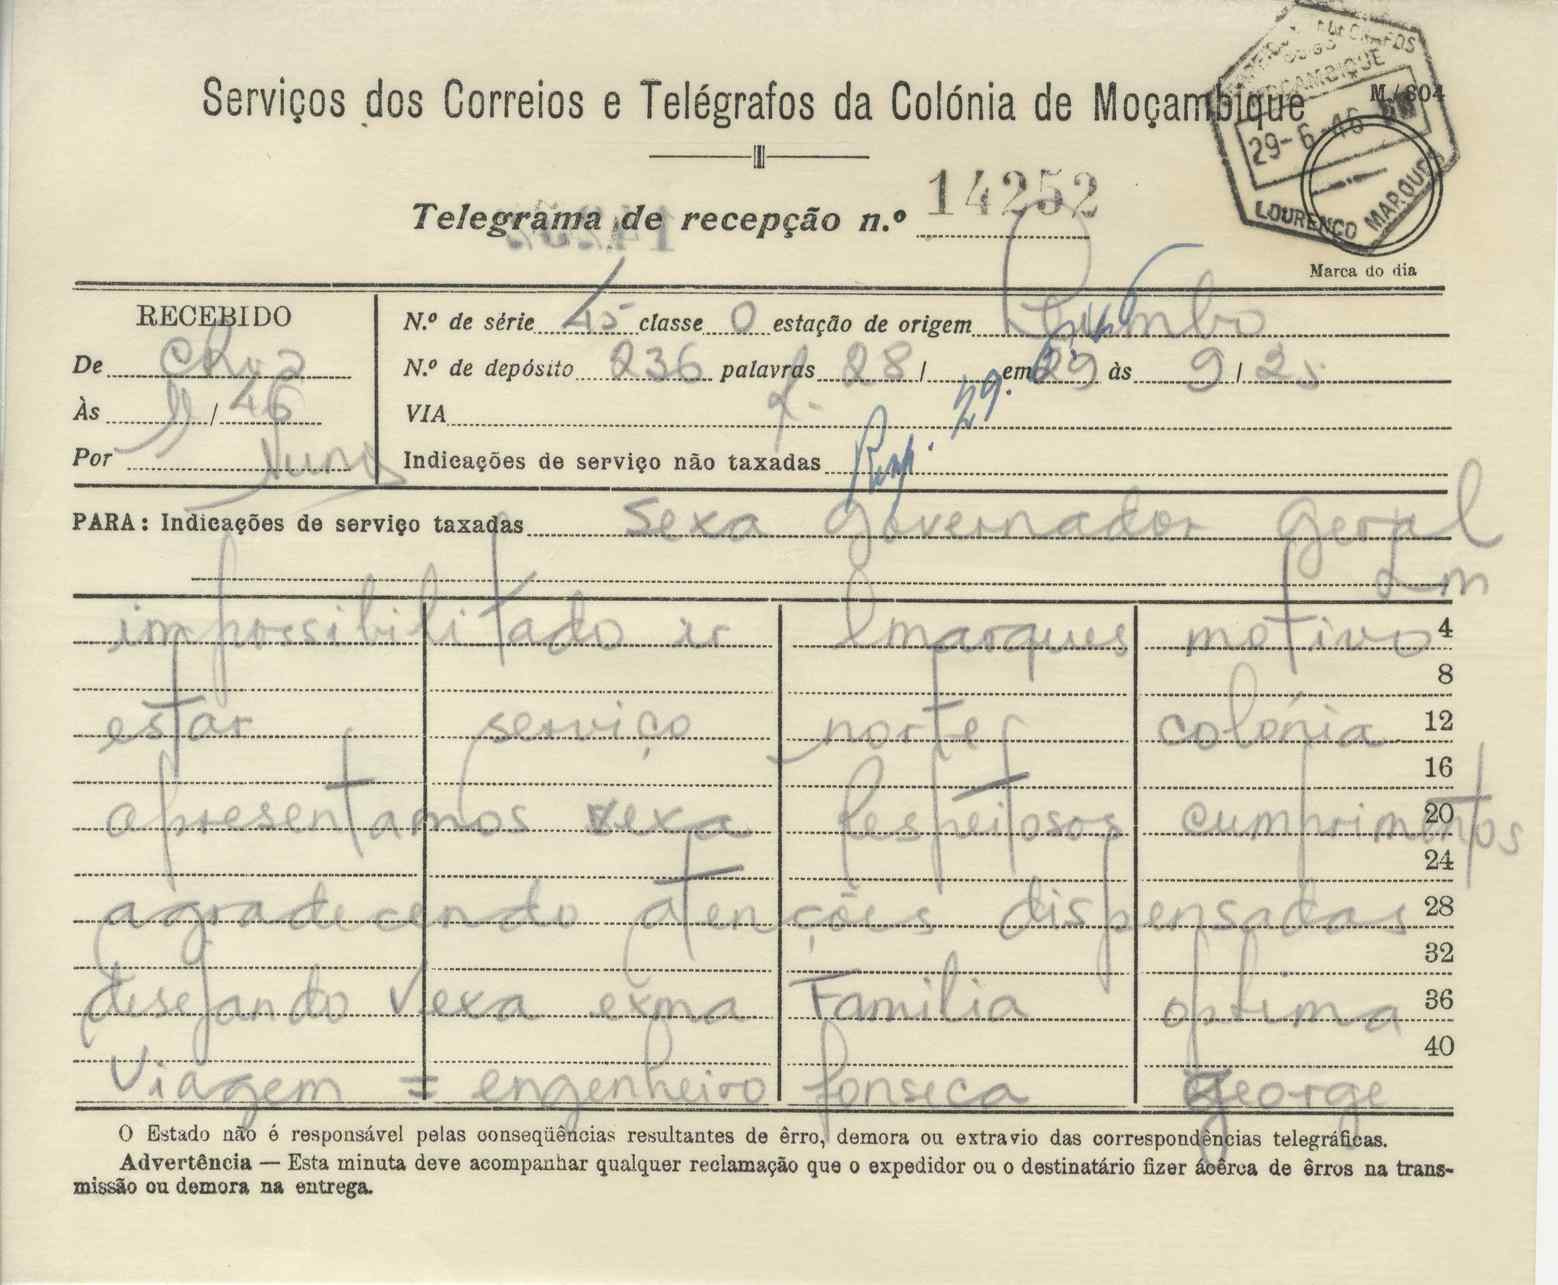 Serviços dos Correios e Telégrafos da Colónia de Moçambique
M/804
29-6-46
LOURENÇO MARQUES
Marca do dia
Telegrama de recepção n.º 14252
RECEBIDO
De
Às /46
Por
N.º de série 45 classe 0 estação de origem
N.º de depósito 236 palavras 28 / em 29 às 9 / 25
VIA
Indicações de serviço não taxadas Resp. 29.
PARA: Indicações de serviço taxadas Sexa Governador Geral
Lm
impossibilitado ir lmarques motivo 4
8
estar serviço norte colónia 12
16
apresentamos vexa respeitosos cumprimentos 20
24
agradecendo atenções dispensadas 28
32
desejando Vexa exma Familia optima 36
40
Viagem = engenheiro fonseca george
O Estado não é responsável pelas conseqüências resultantes de êrro, demora ou extravio das correspondências telegráficas.
Advertência — Esta minuta deve acompanhar qualquer reclamação que o expedidor ou o destinatário fizer àcêrca de êrros na trans-
missão ou demora na entrega.